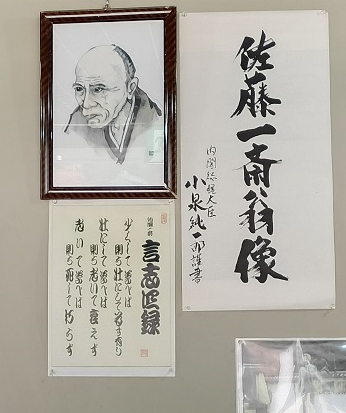 佐藤一斎翁像
内閣総理大臣
小泉純一郎謹書
佐藤一斎
言志四録
少くして学べば
則ち壮にして為す有り
壮にして学べば
則ち老いて衰えず
老いて学べば
則ち死して朽ちず